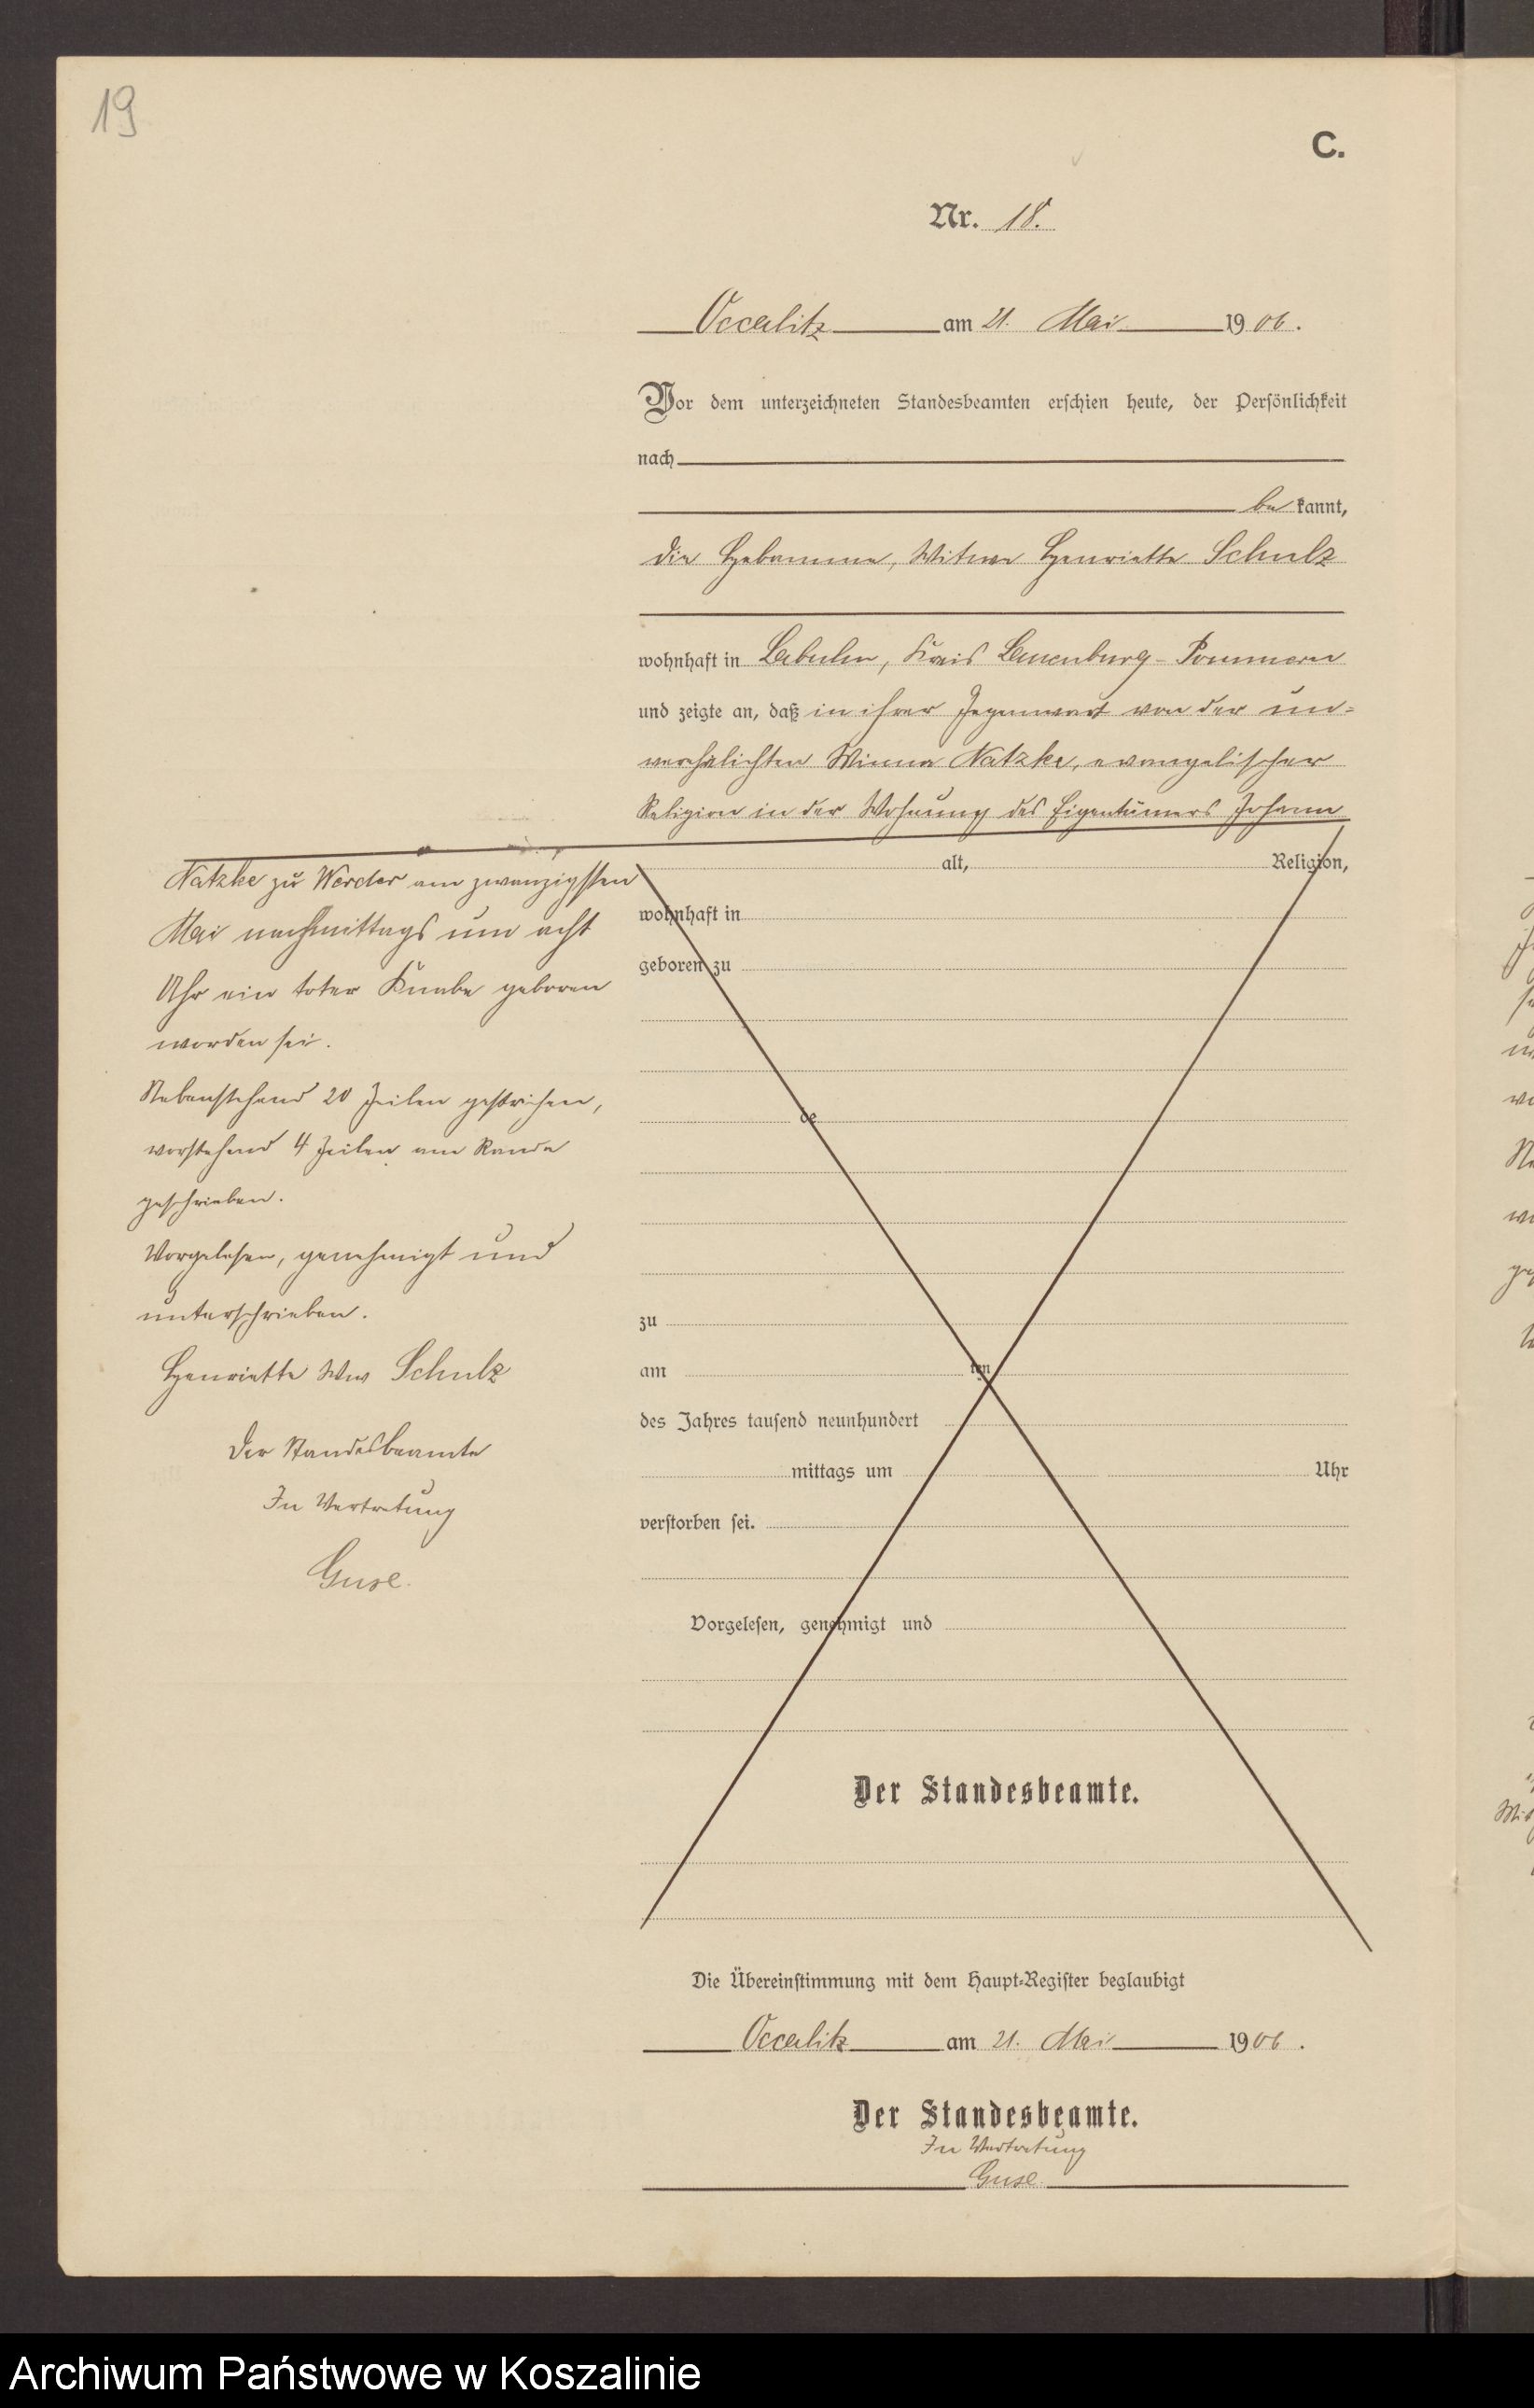 19
C.
Nr. 18.
Occalitz am 21. Mai 1906.
Vor dem unterzeichneten Standesbeamten erschien heute, der Persönlichkeit
nach
be kannt,
die Hebamme, Witwe Henriette Schulz
wohnhaft in Labuhn, Kreis Lauenburg-Pommern
und zeigte an, daß in ihrer Gegenwart von der un=
verehelichten Minna Natzke, evangelischer
Religion in der Wohnung des Eigentümers Johann
Natzke zu Werder am zwanzigsten
Mai nachmittags um acht
Uhr ein toter Knabe geboren
worden sei.
Nebenstehend 20 Zeilen gestrichen,
vorstehend 4 Zeilen am Rande
geschrieben.
Vorgelesen, genehmigt und
unterschrieben.
Henriette Ww Schulz
Der Standesbeamte
In Vertretung
Guse.
alt, Religion,
wohnhaft in
geboren zu
de
zu
am ten
des Jahres tausend neunhundert
mittags um Uhr
verstorben sei.
Vorgelesen, genehmigt und
Der Standesbeamte.
Die Übereinstimmung mit dem Haupt-Register beglaubigt
Occalitz am 21. Mai 1906.
Der Standesbeamte.
In Vertretung
Guse.
Archiwum Państwowe w Koszalinie